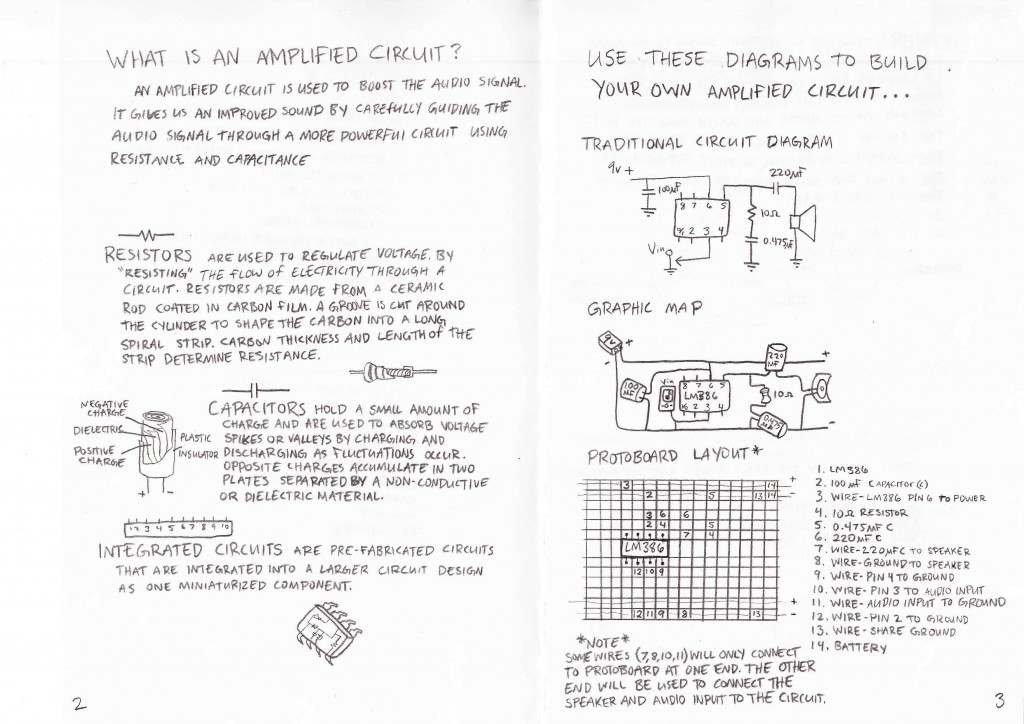 WHAT IS AN AMPLIFIED CIRCUIT?
AN AMPLIFIED CIRCUIT IS USED TO BOOST THE AUDIO SIGNAL.
IT GIVES US AN IMPROVED SOUND BY CAREFULLY GUIDING THE
AUDIO SIGNAL THROUGH A MORE POWERFUL CIRCUIT USING
RESISTANCE AND CAPACITANCE
RESISTORS ARE USED TO REGULATE VOLTAGE. BY
"RESISTING" THE FLOW OF ELECTRICITY THROUGH A
CIRCUIT. RESISTORS ARE MADE FROM A CERAMIC
ROD COATED IN CARBON FILM. A GROOVE IS CUT AROUND
THE CYLINDER TO SHAPE THE CARBON INTO A LONG
SPIRAL STRIP. CARBON THICKNESS AND LENGTH OF THE
STRIP DETERMINE RESISTANCE.
NEGATIVE
CHARGE
DIELECTRIC
POSITIVE
CHARGE
PLASTIC
INSULATOR
+ -
CAPACITORS HOLD A SMALL AMOUNT OF
CHARGE AND ARE USED TO ABSORB VOLTAGE
SPIKES OR VALLEYS BY CHARGING AND
DISCHARGING AS FLUCTUATIONS OCCUR.
OPPOSITE CHARGES ACCUMULATE IN TWO
PLATES SEPARATED BY A NON-CONDUCTIVE
OR DIELECTRIC MATERIAL.
1 2 3 4 5 6 7 8 9 10
INTEGRATED CIRCUITS ARE PRE-FABRICATED CIRCUITS
THAT ARE INTEGRATED INTO A LARGER CIRCUIT DESIGN
AS ONE MINIATURIZED COMPONENT.
2
USE THESE DIAGRAMS TO BUILD
YOUR OWN AMPLIFIED CIRCUIT...
TRADITIONAL CIRCUIT DIAGRAM
9V +
100µF
220µF
8 7 6 5
2 3 4
10Ω
0.475µF
Vin
GRAPHIC MAP
9V
+
220
µF
+
100
µF
Vin
8 7 6 5
LM386
2 3 4
10Ω
0.475
µF
-
-
PROTOBOARD LAYOUT*
3 14 +
2 5 13 14 -
3 6 6
2 4 5
7 4
LM386
12 10 9
+
12 11 9 8 13 -
1. LM386
2. 100µF CAPACITOR(C)
3. WIRE-LM386 PIN 6 TO POWER
4. 10Ω RESISTOR
5. 0.475µF C
6. 220µF C
7. WIRE-220µFC TO SPEAKER
8. WIRE-GROUND TO SPEAKER
9. WIRE-PIN 4 TO GROUND
10. WIRE-PIN 3 TO AUDIO INPUT
11. WIRE-AUDIO INPUT TO GROUND
12. WIRE-PIN 2 TO GROUND
13. WIRE-SHARE GROUND
14. BATTERY
*NOTE*
SOME WIRES (7,8,10,11) WILL ONLY CONNECT
TO PROTOBOARD AT ONE END. THE OTHER
END WILL BE USED TO CONNECT THE
SPEAKER AND AUDIO INPUT TO THE CIRCUIT.
3